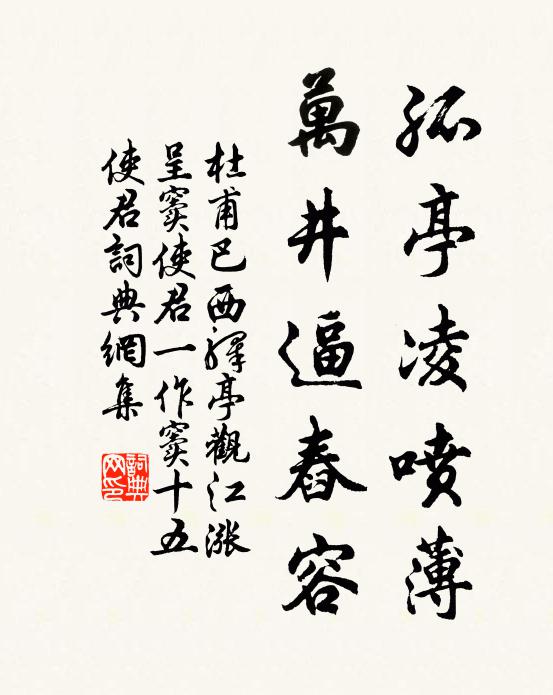 孤亭凌喷薄
萬井逼舂容
杜甫巴西驛亭觀江漲
呈窦使君一作窦十五
使君詞典網集
詞典网印